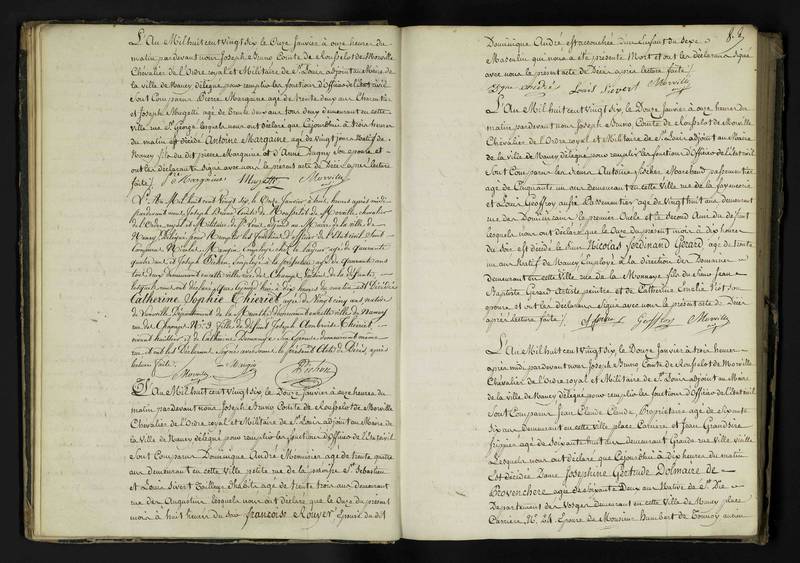 L'An Mil huit cent vingt six le Onze Janvier à onze heures du
matin pardevant nous Joseph Bruno Comte de Rousselot de Morville
Chevalier de l'Ordre royal et Militaire de St. Louis adjoint au Maire de
la ville de Nancy délégué pour remplir les fonctions d'Officier de l'état civil
Sont Comparus Pierre Margaine agé de trente deux ans Charretier
et Joseph Mugetti agé de trente deux ans tous deux demeurant en cette
ville rue St. George lesquels nous ont déclaré que Cejourd'hui à trois heures
du matin est décédé Antoine Margaine agé de vingt jours Natif de
Nancy fils du dit pierre Margaine et d'Anne Dugny son epouse et
ont les déclarants signé avec nous le présent acte de Décès après lecture
faite. P. Margaine Mugetti Morville
L'An Mil huit cent Vingt Six, le Onze Janvier à huit heures après midi
pardevant nous Joseph Bruno Comte de Rousselot de Morville, chevalier
de l'Ordre royal et Militaire de St. Louis, adjoint au Maire de la ville de
Nancy, délégué pour Remplir les fonctions d'Officier de l'Etat civil, Sont
comparus Nicolas Mougin Employé chez le payeur agé de quarante
quatre ans et Joseph Bichon, Employé à la préfecture, agé de quarante ans
tous deux demeurant en cette ville rue des Champs, Voisins de la défunte,
lesquels nous ont déclaré que Cejourd'hui à Dix heures du matin est Décédée
Catherine Sophie Thieriet, agée de Vingt cinq ans, native
de Département de la Meurthe, demeurant en cette ville de Nancy
rue des Champs No. 3, fille de défunt Joseph Ambroise Thieriet,
vivant huissier et de Catherine son Epouse demeurant même
rue, et ont les Déclarants, Signé avec nous le présent Acte de Décès, après
lecture faite. Mougin
Morville Bichon
L'An Mil huit cent Vingt Six, le Douze Janvier à onze heures du
matin pardevant nous Joseph Bruno Comte de Rousselot de Morville
Chevalier de l'Ordre royal et Militaire de St. Louis adjoint au Maire de
la Ville de Nancy délégué pour remplir les fonctions d'Officier de l'Etat civil
Sont Comparus Dominique André Menuisier agé de trente quatre
ans demeurant en cette Ville petite rue de la paroisse St. Sébastien
et Louis Sivert Tailleur d'habits agé de trente trois ans demeurant
rue des Augustins lesquels nous ont déclaré que le Onze du présent
mois à huit heures du soir françoise Rouyer Epouse du dit
82
Dominique André est accouchée d'un Enfant du Sexe
Masculin qui nous a été présenté Mort et ont les déclarans signé
avec nous le présent acte de Décès après lecture faite.
Dque André Louis Sievert Morville
L'An Mil huit cent vingt six, le Douze Janvier à onze heures du
matin pardevant nous Joseph Bruno Comte de Rousselot de Morville
Chevalier de l'Ordre royal et Militaire de St. Louis adjoint au Maire
de la Ville de Nancy délégué pour remplir les fonctions d'Officier de l'Etat civil
Sont Comparus les Sieurs Antoine Marchand passementier
agé de Cinquante un ans demeurant en cette Ville rue de la fayencerie
et Louis Geoffroy aussi Passementier agé de vingt huit ans demeurant
rue des Dominicains le premier Oncle et le second Ami du défunt
lesquels nous ont déclaré que le Onze du présent mois à dix heures
du soir est décédé le Sieur Nicolas Ferdinand Gérard agé de trente
un ans Natif de Nancy Employé à la direction des Domaines
demeurant en cette Ville rue de la Monnaye fils du Sieur Jean
Baptiste Gérard Artiste peintre et de Catherine Emélie Piot son
epouse et ont les déclarans signé avec nous le présent acte de Décès
après lecture faite. Geoffroy Morville
L'An Mil huit cent vingt six, le Douze Janvier à trois heures
après midi pardevant nous Joseph Bruno Comte de Rousselot de Morville
Chevalier de l'Ordre royal et Militaire de St. Louis adjoint au Maire
de la Ville de Nancy délégué pour remplir les fonctions d'Officier de l'Etat civil
Sont Comparus Jean Claude Claude, Propriétaire agé de soixante
six ans demeurant en cette Ville place Carrière et Jean Grandidre
fripier agé de Soixante huit ans demeurant Grande rue Ville vieille
Lesquels nous ont déclaré que Cejourd'hui à dix heures du matin
Est décédée Dame Josephine Gertrude Dolmaire de
Provenchere agée de soixante Deux ans Native de St. Dié
Département des Vosges demeurant en cette Ville de Nancy place
Carriere No. 24. Epouse de Monsieur Humbert de Tonnoy ancien